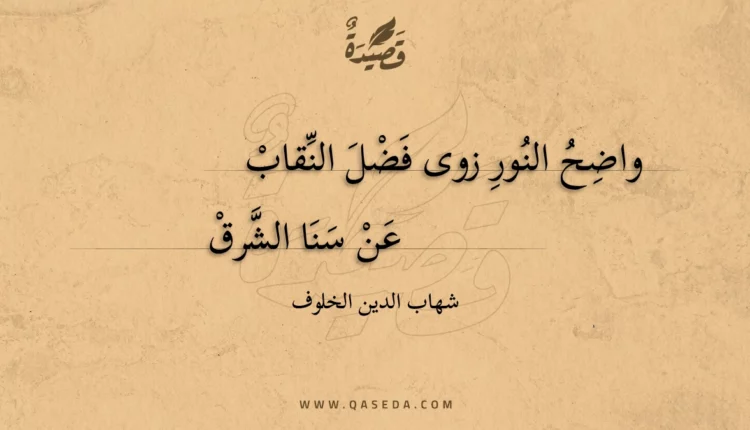 قَصِيْدَةٌ
واضِحُ النُورِ زوى فَضْلَ النِّقابْ
عَنْ سَنَا الشَّرقْ
شهاب الدين الخلوف
WWW.QASEDA.COM